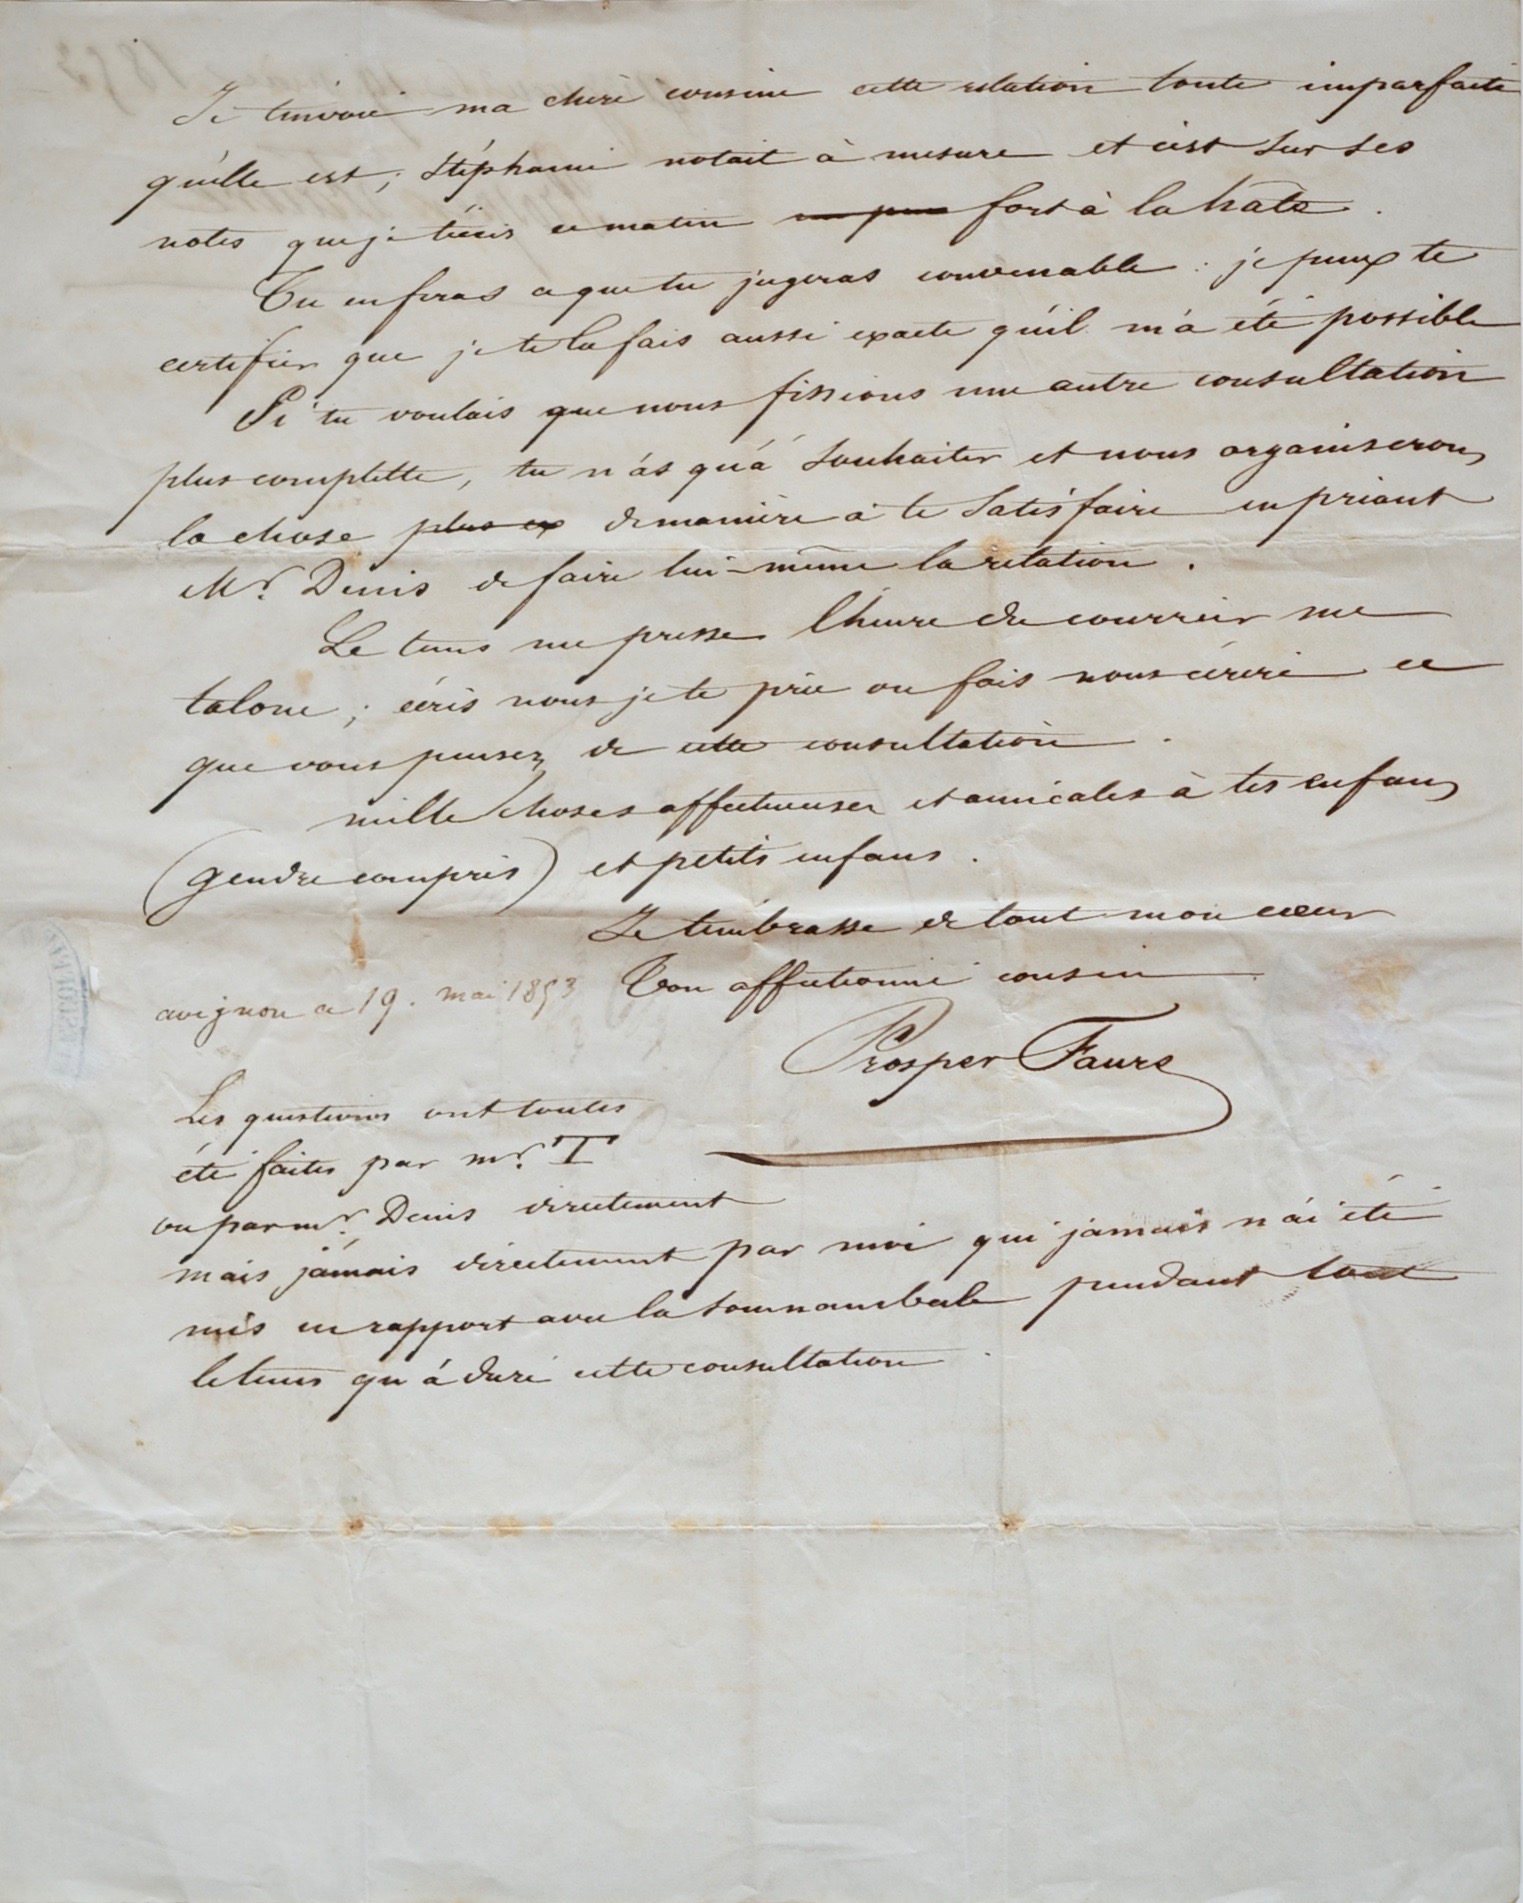 Je t'envoie ma chère cousine cette relation toute imparfaite
qu'elle est ; Stéphanie notait à mesure et c'est sur ses
notes que je t'écris ce matin fort à la hâte .
Tu en feras ce que tu jugeras convenable : je peux te
certifier que je te la fais aussi exacte qu'il m'a été possible
Si tu voulais que nous fissions une autre consultation
plus complette, tu n'as qu'à souhaiter et nous organiserons
la chose plus ex de manière à te satisfaire en priant
Mr. Denis de faire lui-même la relation .
Le tems me presse l'heure du courrier me
talone ; écris nous je te prie ou fais nous écrire ce
que vous pensez de cette consultation .
mille choses affectueuses et amicales à tes enfans
(gendre compris) et petits enfans .
Je t'embrasse de tout mon cœur
Ton affectionné cousin
avignon ce 19. mai 1853
Prosper Faure
Les questions ont toutes
été faites par mr. T
ou par mr. Denis directement
mais jamais directement par moi qui jamais n'ai été
mis en rapport avec la somnambule pendant tout
le tems qu'à duré cette consultation .